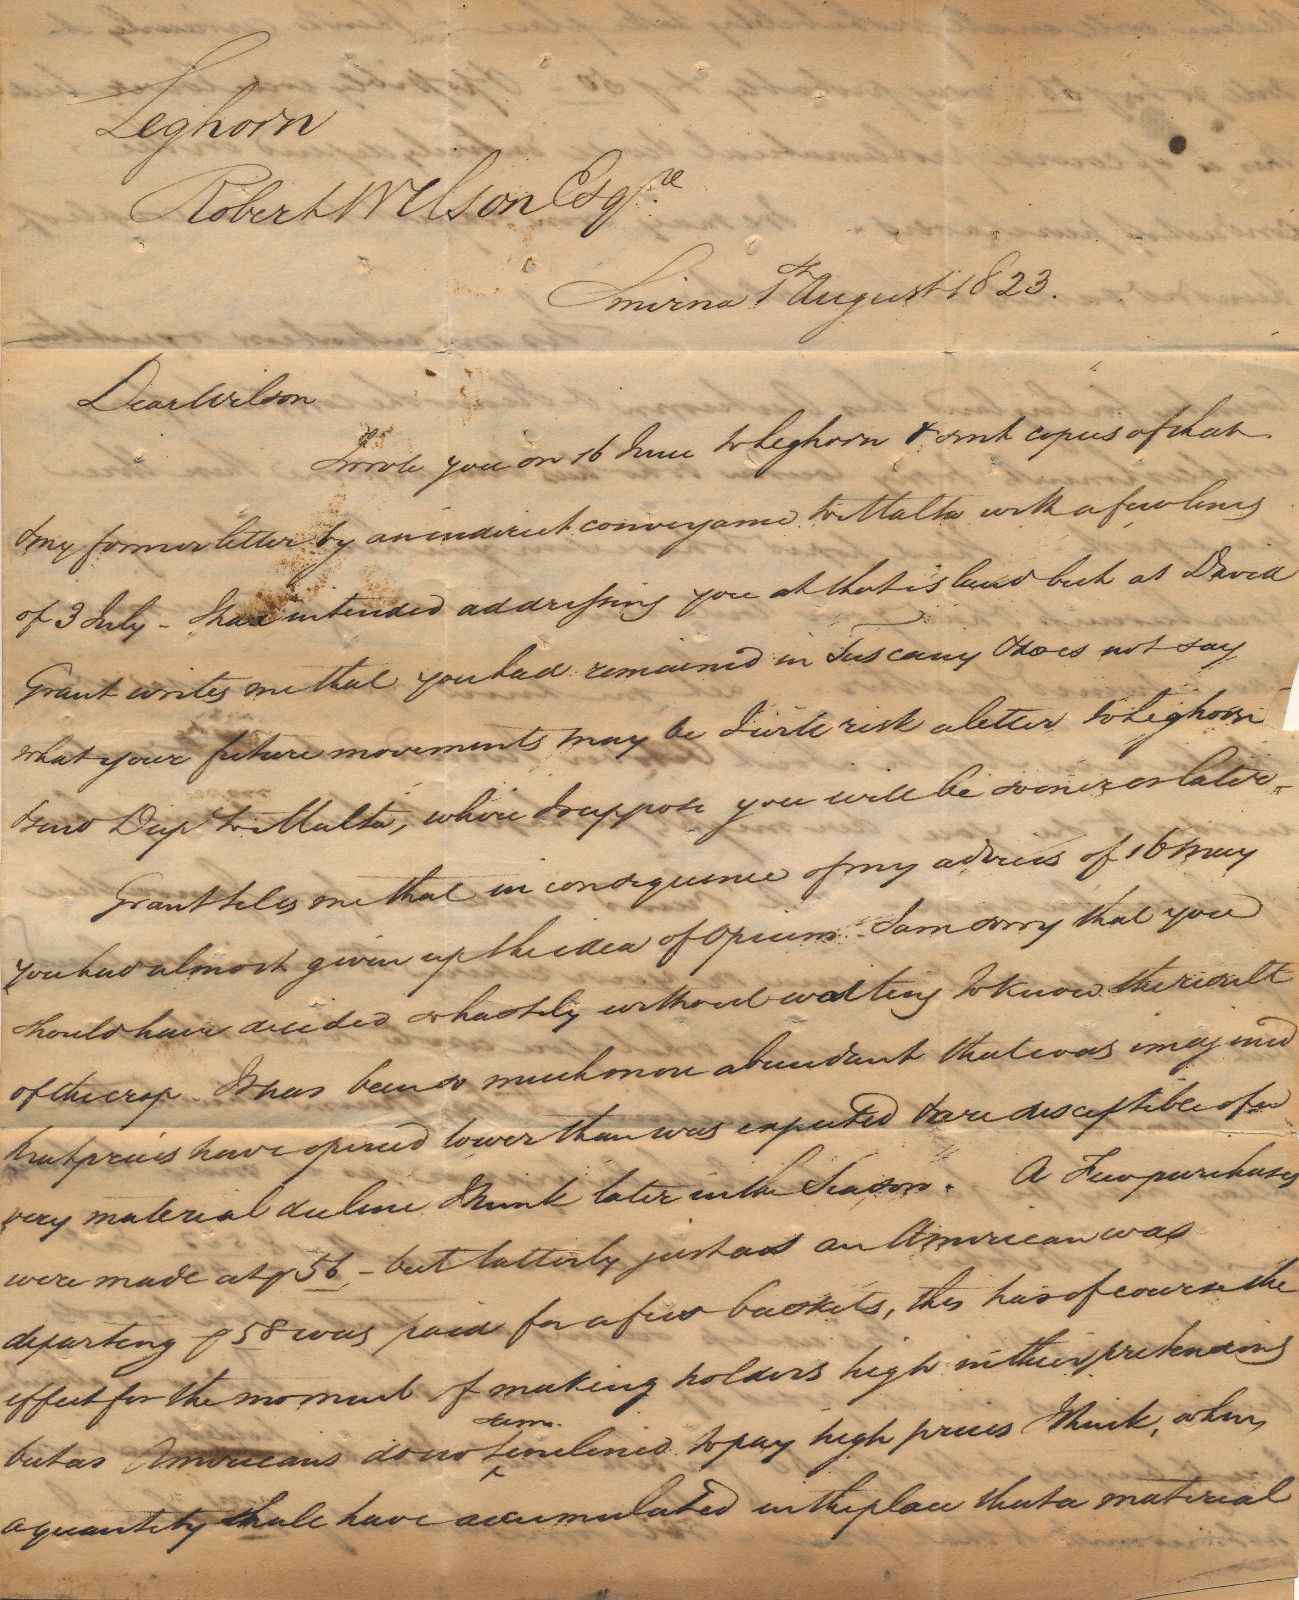 Leghorn
Robert Wilson Esqre
Smirna 1st August 1823.
Dear Wilson
I wrote you on 16 June to Leghorn & sent copies of that
& my former letter by an indirect conveyance to Malta with a few lines
of 3 July - I had intended addressing you at that island but as David
Grant writes me that you had remained in Tuscany & does not say
what your future movements may be I will risk a letter to Leghorn
& send Dup to Malta, where I suppose you will be sooner or later.
Grant tells me that in consequence of my advices of 16 May
you had almost given up the idea of Opium - I am sorry that you
should have decided so hastily without waiting to know the result
of the crop. It has been so much more abundant that was imagined
that prices have opened lower than was expected & are susceptible of a
very material decline I think later in the Season. A Few purchases
were made at p 56 - but latterly just as an American was
departing p 58 was paid for a few baskets, this has of course the
effect for the moment of making holders high in their pretensions
but as Americans do not seem inclined to pay high prices I think, when
a quantity shall have accumulated in the place that a material